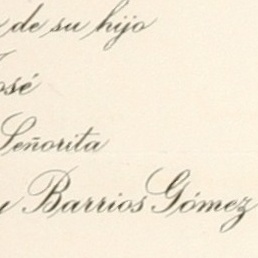 de su hijo
José
Señorita
y Barrios Gómez